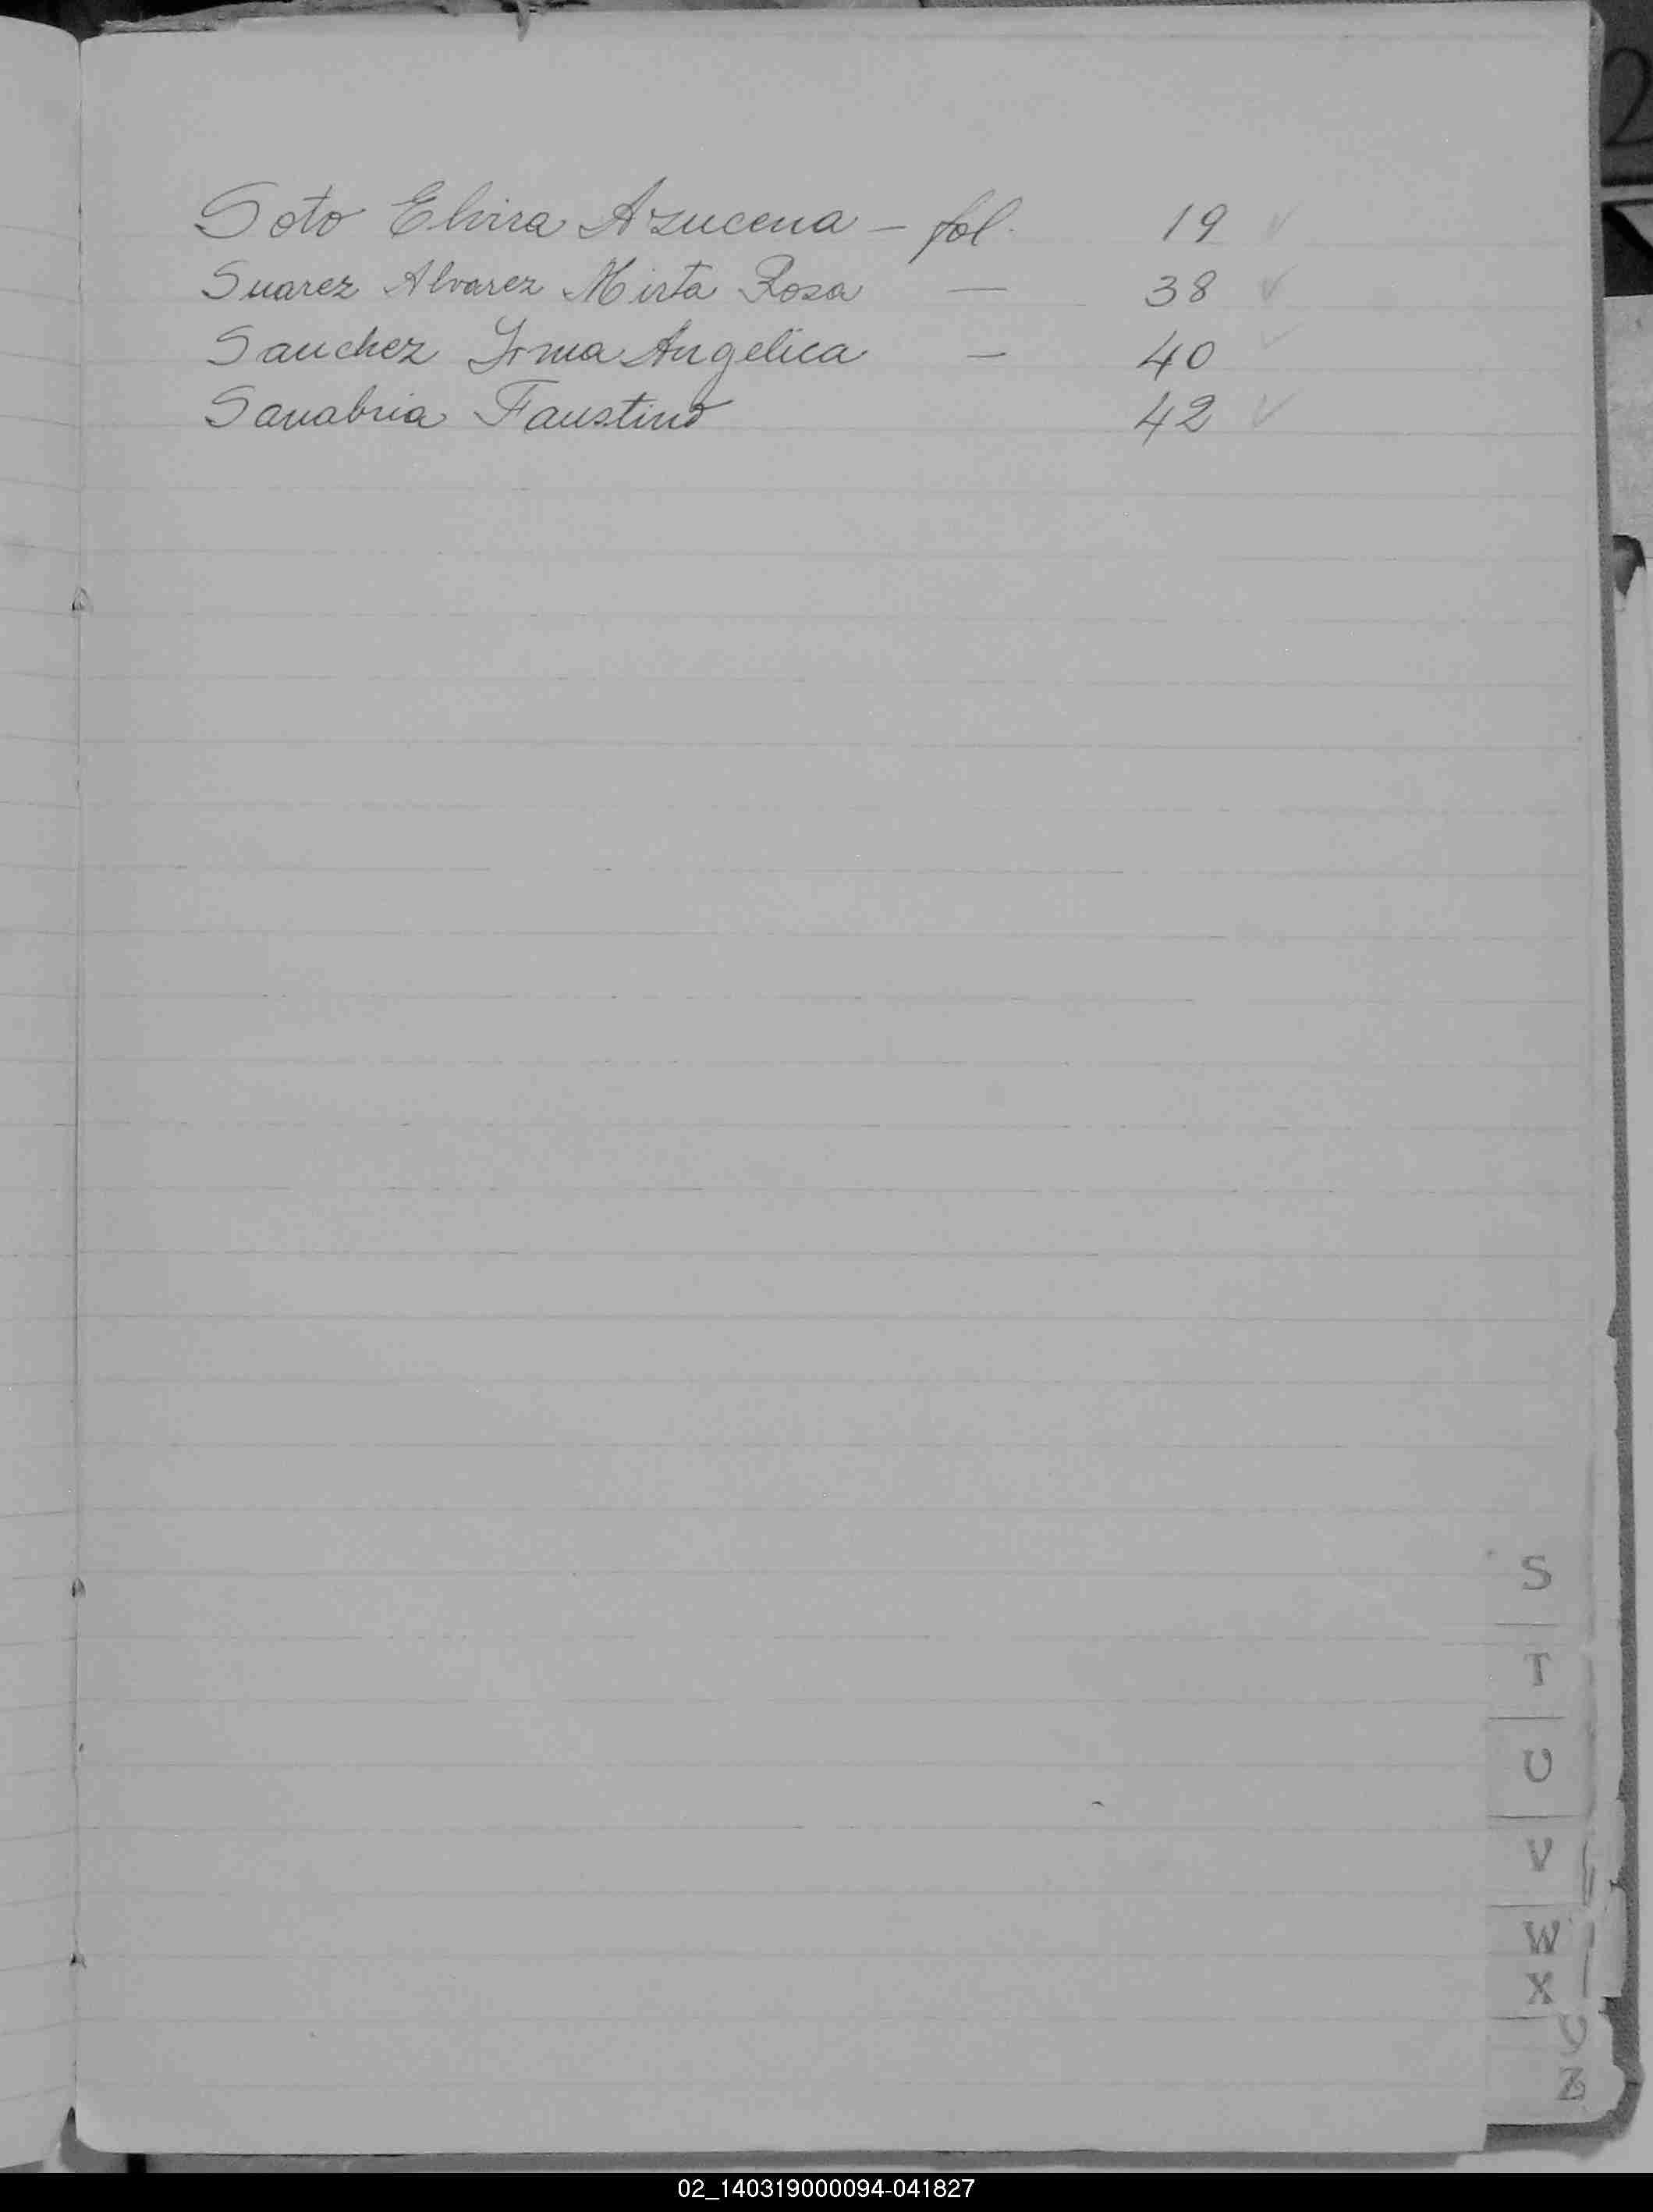 Soto Elvira Azucena - fol. 19 ✓
Suarez Alvarez Mirta Rosa — 38 ✓
Sanchez Irma Angelica — 40 ✓
Sanabria Faustino 42 ✓
S
T
U
V
W
X
Z
02_140319000094-041827